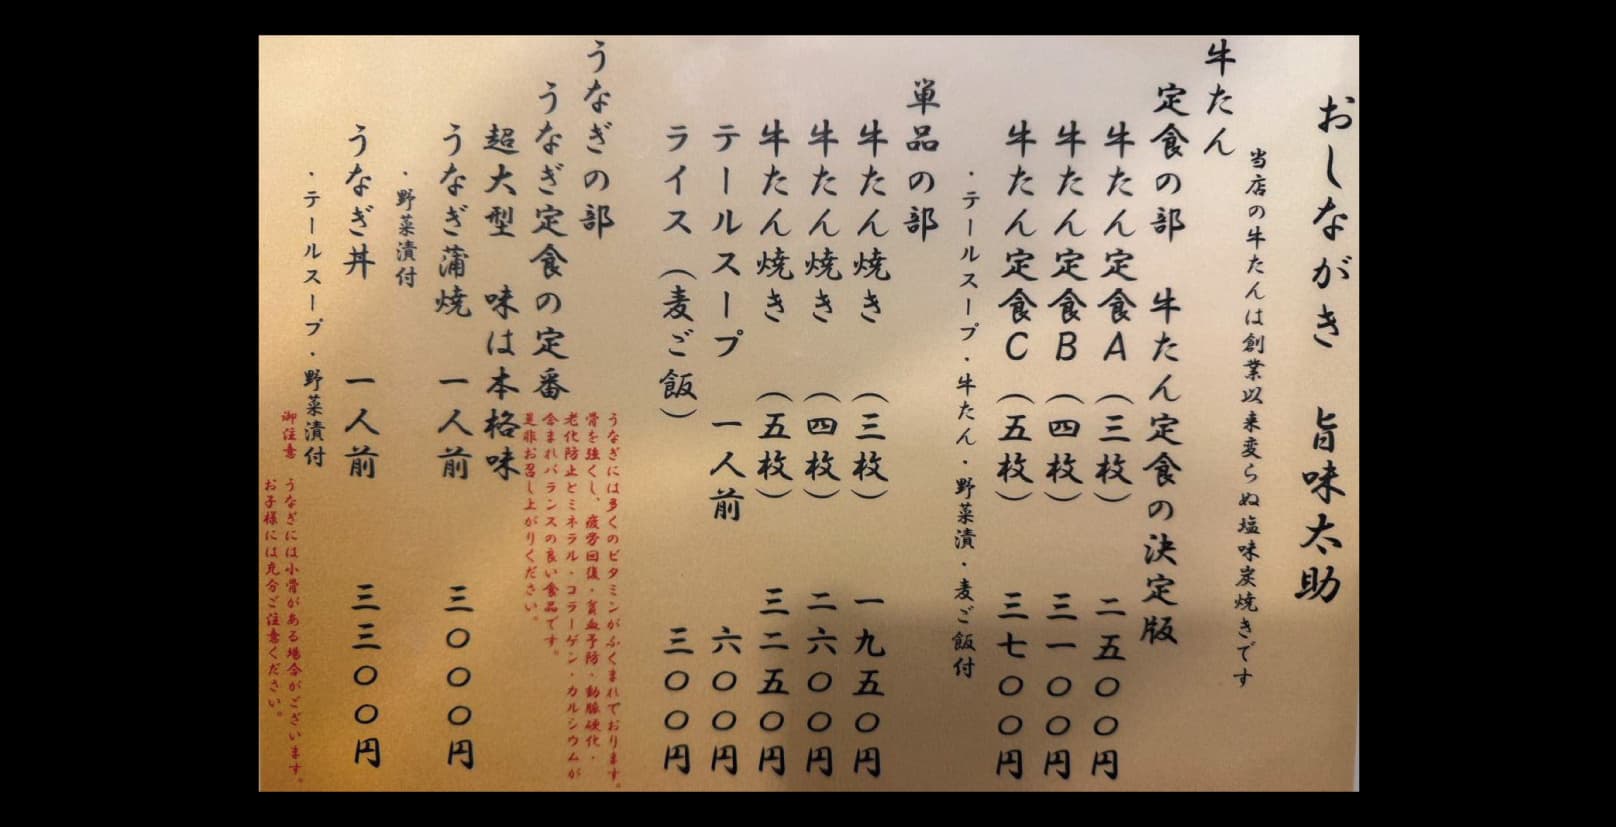 おしながき 旨味太助
当店の牛たんは創業以来変らぬ塩味炭焼きです
牛たん
定食の部 牛たん定食の決定版
牛たん定食A（三枚） 二五〇〇円
牛たん定食B（四枚） 三一〇〇円
牛たん定食C（五枚） 三七〇〇円
・テールスープ・牛たん・野菜漬・麦ご飯付
単品の部
牛たん焼き（三枚） 一九五〇円
牛たん焼き（四枚） 二六〇〇円
牛たん焼き（五枚） 三二五〇円
テールスープ 一人前 六〇〇円
ライス（麦ご飯） 三〇〇円
うなぎの部
うなぎには多くのビタミンがふくまれております。
骨を強くし、疲労回復・貧血予防・動脈硬化・
老化防止とミネラル・コラーゲン・カルシウムが
含まれバランスの良い食品です。
是非お召し上がりください。
うなぎ定食の定番
超大型 味は本格味
うなぎ蒲焼 一人前 三〇〇〇円
・野菜漬付
うなぎ丼 一人前 三三〇〇円
・テールスープ・野菜漬付
御注意 うなぎには小骨がある場合がございます。
お子様には充分ご注意ください。